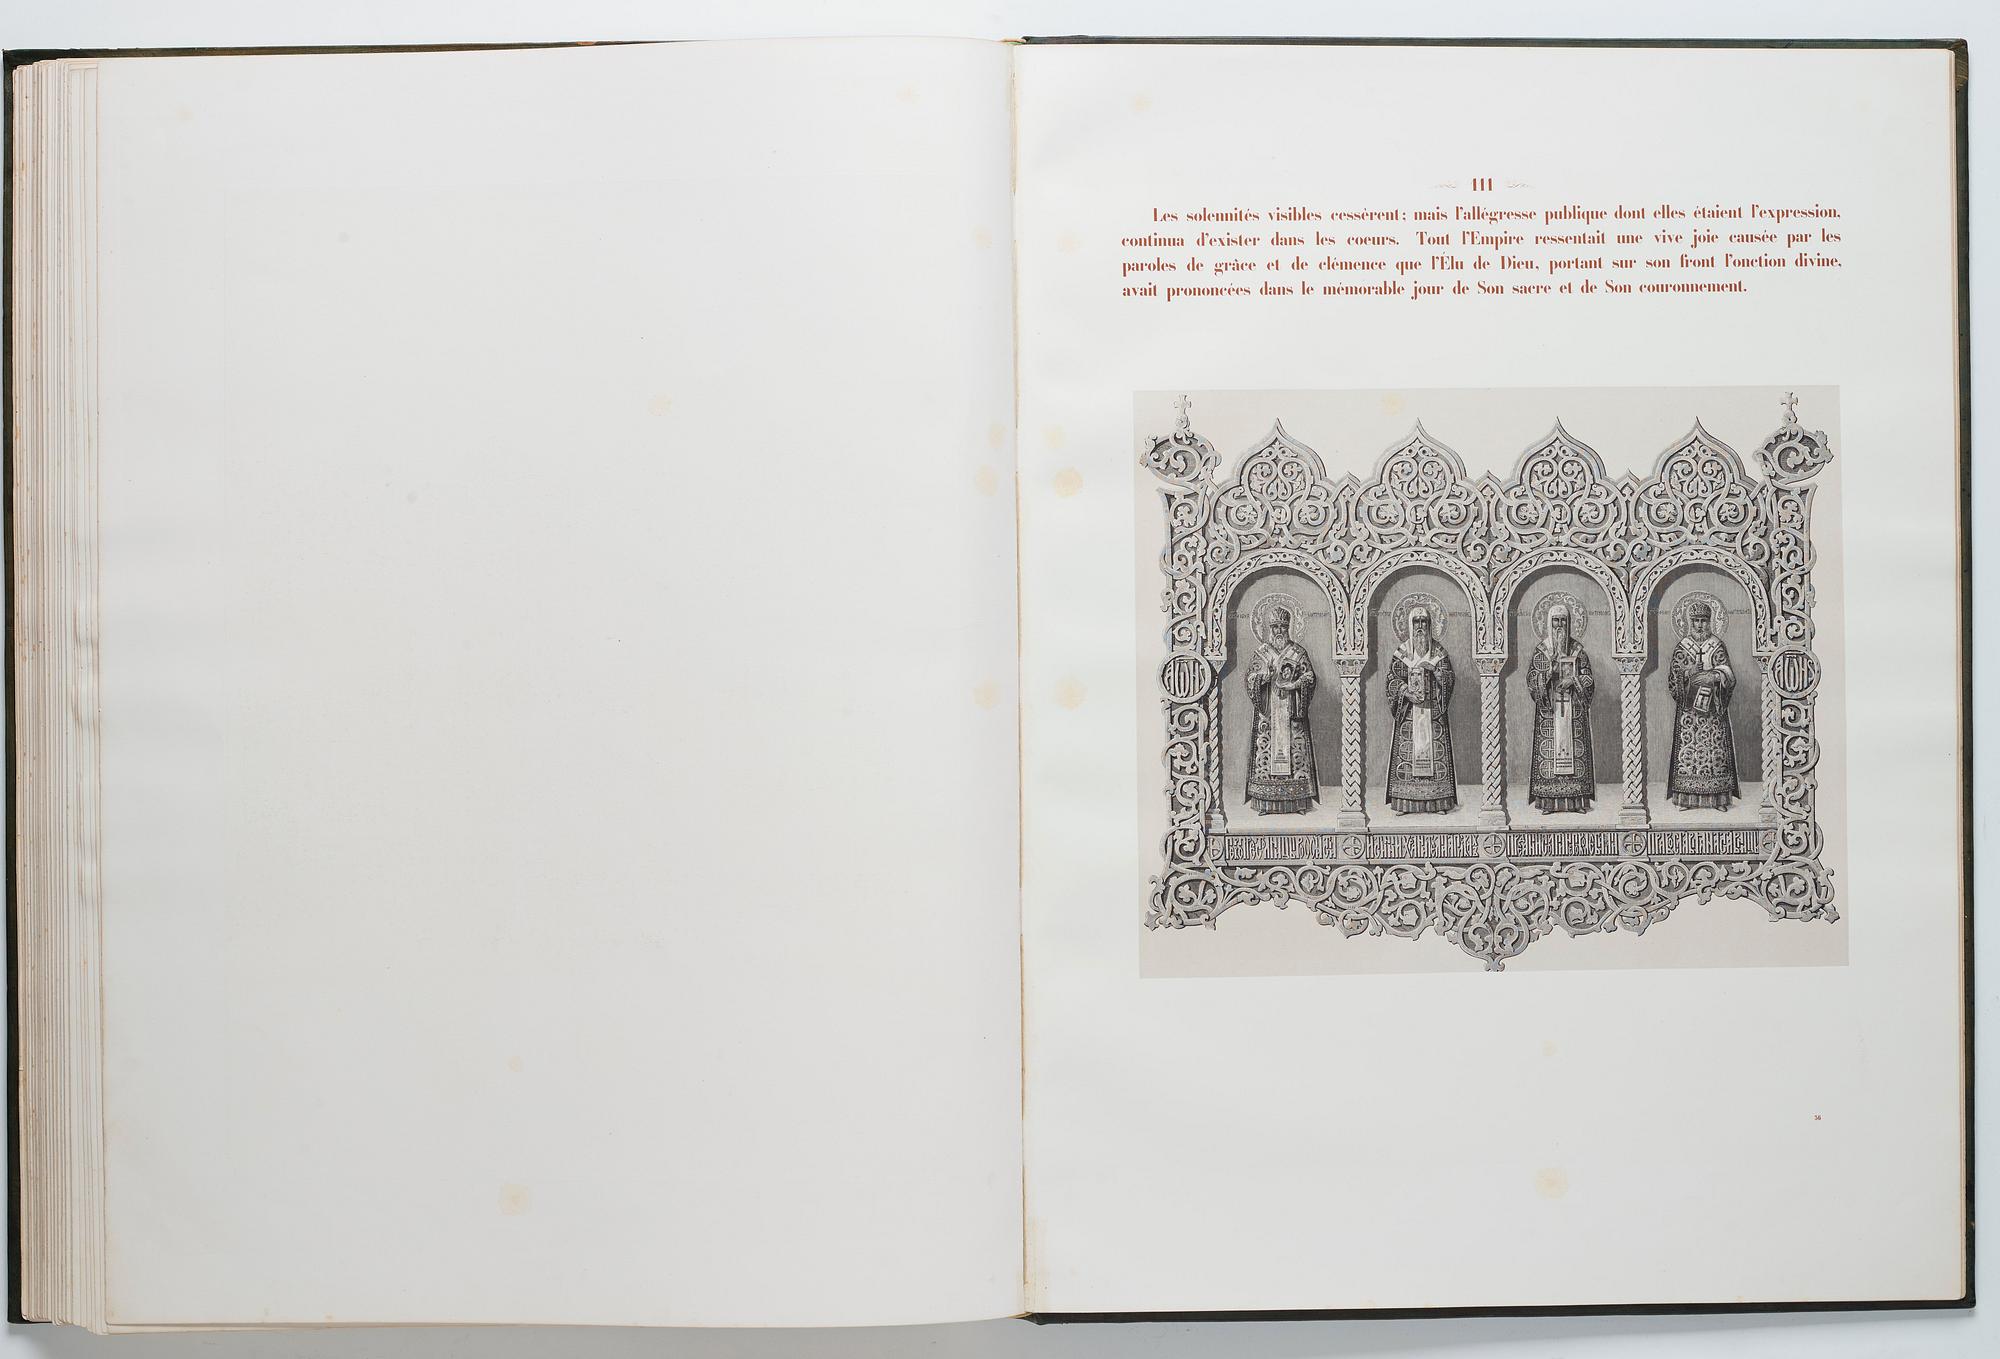 111
Les solennités visibles cessèrent; mais l'allégresse publique dont elles étaient l'expression,
continua d'exister dans les coeurs. Tout l'Empire ressentait une vive joie causée par les
paroles de grâce et de clémence que l'Élu de Dieu, portant sur son front l'onction divine,
avait prononcées dans le mémorable jour de Son sacre et de Son couronnement.
56